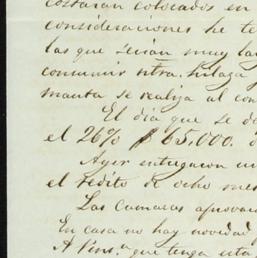 costarán colocados en
consideraciones he te
las que serian muy lar
consumir ntra. hilaza
manta se realiza al con
El dia que se de
el 26% $ 65,000.
Ayer entregaron un
el rédito de ocho mes
Las Camaras aprovar
En casa no hay novedad
A Pens.ª que tenga esta